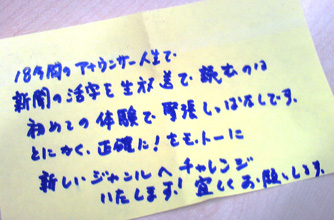 18年間のアナウンサー人生で
新聞の活字を生放送で読むのは
初めての体験で緊張しっぱなしです。
とにかく、正確に!をモットーに
新しいジャンルへチャレンジ
いたします!宜しくお願いします。